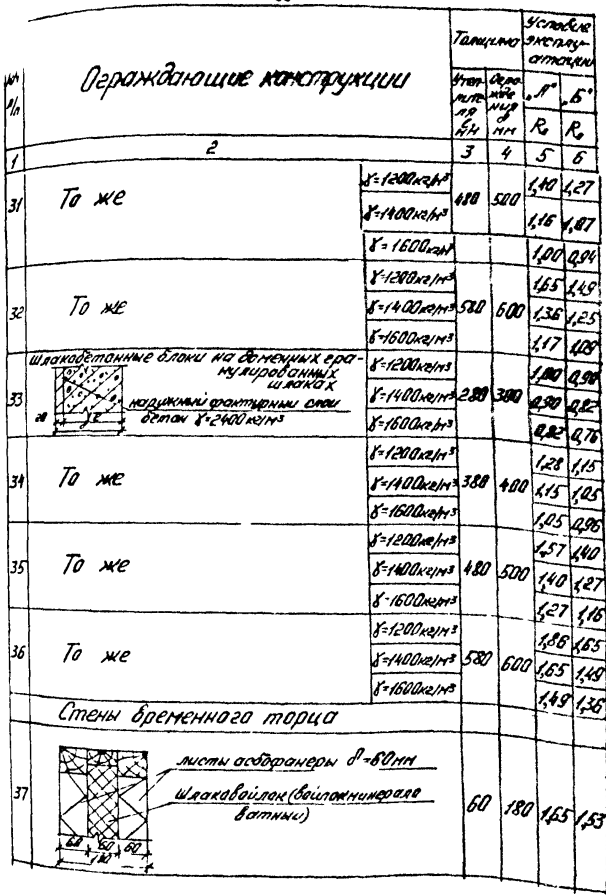 Ограждающие конструкции
Толщина
Условие эксплуатации
№№ п/п
Утеплителя С мм
Ограждения δ мм
„А" „Б"
R₀ R₀
1 2 3 4 5 6
31 То же γ=1200кг/м³ 480 500 1,40 1,27
γ=1400кг/м³ 1,16 1,07
γ=1600кг/м³ 1,00 0,94
32 То же γ=1200кг/м³ 580 600 1,65 1,49
γ=1400кг/м³ 1,36 1,25
γ=1600кг/м³ 1,17 1,09
33 шлакобетонные блоки на доменных гра-
нулированных
шлаках
наружный фактурный слой
бетон γ=2400кг/м³
20
γ=1200кг/м³ 280 300 1,00 0,90
γ=1400кг/м³ 0,90 0,82
γ=1600кг/м³ 0,82 0,76
34 То же γ=1200кг/м³ 380 400 1,28 1,15
γ=1400кг/м³ 1,15 1,05
γ=1600кг/м³ 1,05 0,96
35 То же γ=1200кг/м³ 480 500 1,57 1,40
γ=1400кг/м³ 1,40 1,27
γ=1600кг/м³ 1,27 1,16
36 То же γ=1200кг/м³ 580 600 1,86 1,65
γ=1400кг/м³ 1,65 1,49
γ=1600кг/м³ 1,49 1,36
Стены временного торца
37 листы асбофанеры δ=60мм
шлаковойлок (войлок минерало
ватный)
60 60 60
180
60 180 1,65 1,53